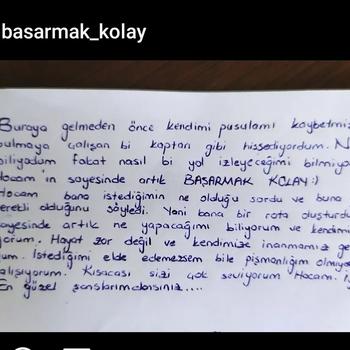 basarmak_kolay
Buraya gelmeden önce kendimi pusulamı kaybetmiş
bulmaya çalışan bi kaptan gibi hissediyordum. N
biliyodum fakat nasıl bi yol izleyeceğimi bilmiyo
Hocam'ın sayesinde artık BAŞARMAK KOLAY :)
Hocam bana istediğimin ne olduğu sordu ve buna
gerekli olduğunu söyledi. Yani bana bir rota oluşturdu
sayesinde artık ne yapacağımı biliyorum ve kendim
yorum. Hayat zor değil ve kendimize inanmamız ge
um. İstediğimi elde edemezsem bile pişmanlığım olmıya
çalışıyorum. Kısacası sizi çok seviyorum Hocam. İ
En güzel şanslarımdansınız....